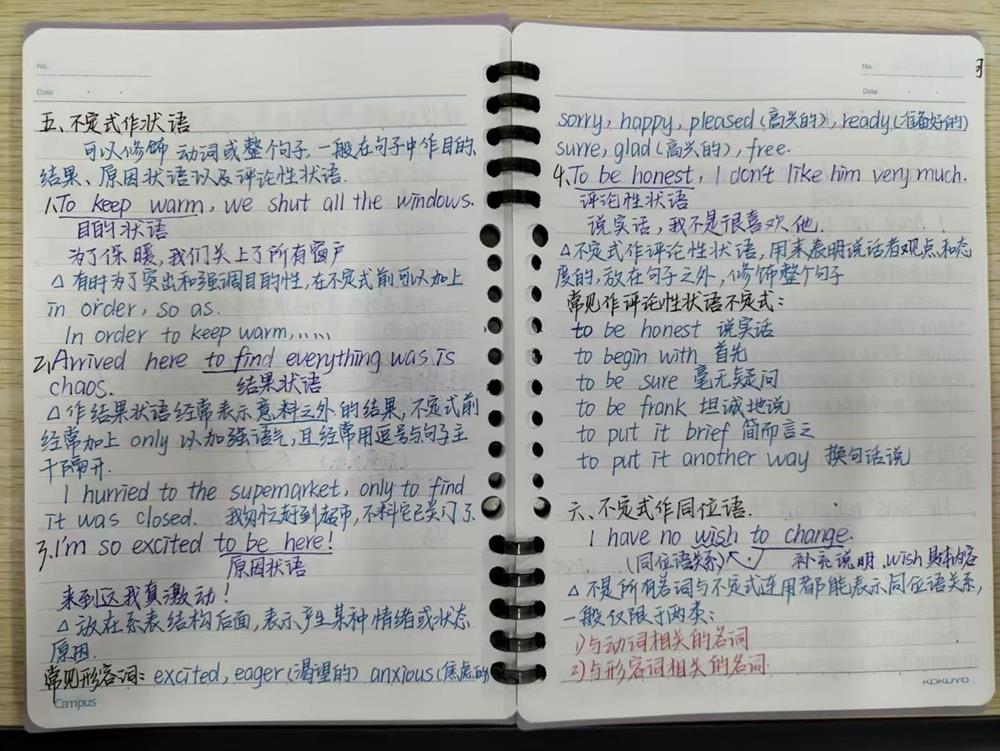 No.
Date
五、不定式作状语
可以修饰动词或整个句子,一般在句子中作目的、
结果、原因状语以及评论性状语.
1.To keep warm, we shut all the windows.
目的状语
为了保暖,我们关上了所有窗户
△有时为了突出和强调目的性,在不定式前可以加上
in order, so as.
In order to keep warm, ......
2.Arrived here to find everything was is
chaos.
结果状语
△作结果状语经常表示意料之外的结果,不定式前
经常加上 only 以加强语气,且经常用逗号与句子主
干隔开.
I hurried to the supemarket, only to find
it was closed. 我匆忙赶到超市,不料它已关门了.
3.I'm so excited to be here!
原因状语
来到这我真激动!
△放在系表结构后面,表示产生某种情绪或状态
原因.
常见形容词: excited, eager(渴望的) anxious(焦虑的)
Campus
No.
Date
sorry, happy, pleased(高兴的), ready(准备好的)
surre, glad(高兴的), free.
4.To be honest, I don't like him very much.
评论性状语
说实话,我不是很喜欢他.
△不定式作评论性状语,用来表明说话者观点和态
度的,放在句子之外,修饰整个句子
常见作评论性状语不定式:
to be honest 说实话
to begin with 首先
to be sure 毫无疑问
to be frank 坦诚地说
to put it brief 简而言之
to put it another way 换句话说
六、不定式作同位语.
I have no wish to change.
(同位语关系) 补充说明 wish 具体内容
△不是所有名词与不定式连用都能表示同位语关系,
一般仅限于两类:
1)与动词相关的名词
2)与形容词相关的名词.
KOKUYO